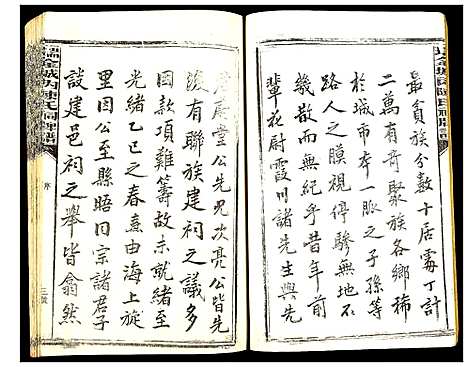 最貧族分數十居寡丁計
二萬有奇聚族各鄉稀
於城市本一脈之子孫等
路人之膜視停驂無地不
幾散而無紀乎昔年前
輩花尉霞川諸先生與先
君屏堂公先兄次亮公皆先
後有聯族建祠之議多
因款項難籌故未就緒至
光緒乙巳之春意由海上旋
公至縣晤旧宗諸君子
設建邑祠之舉皆翕然
瑞金城內陳氏祠牌譜
序
三號